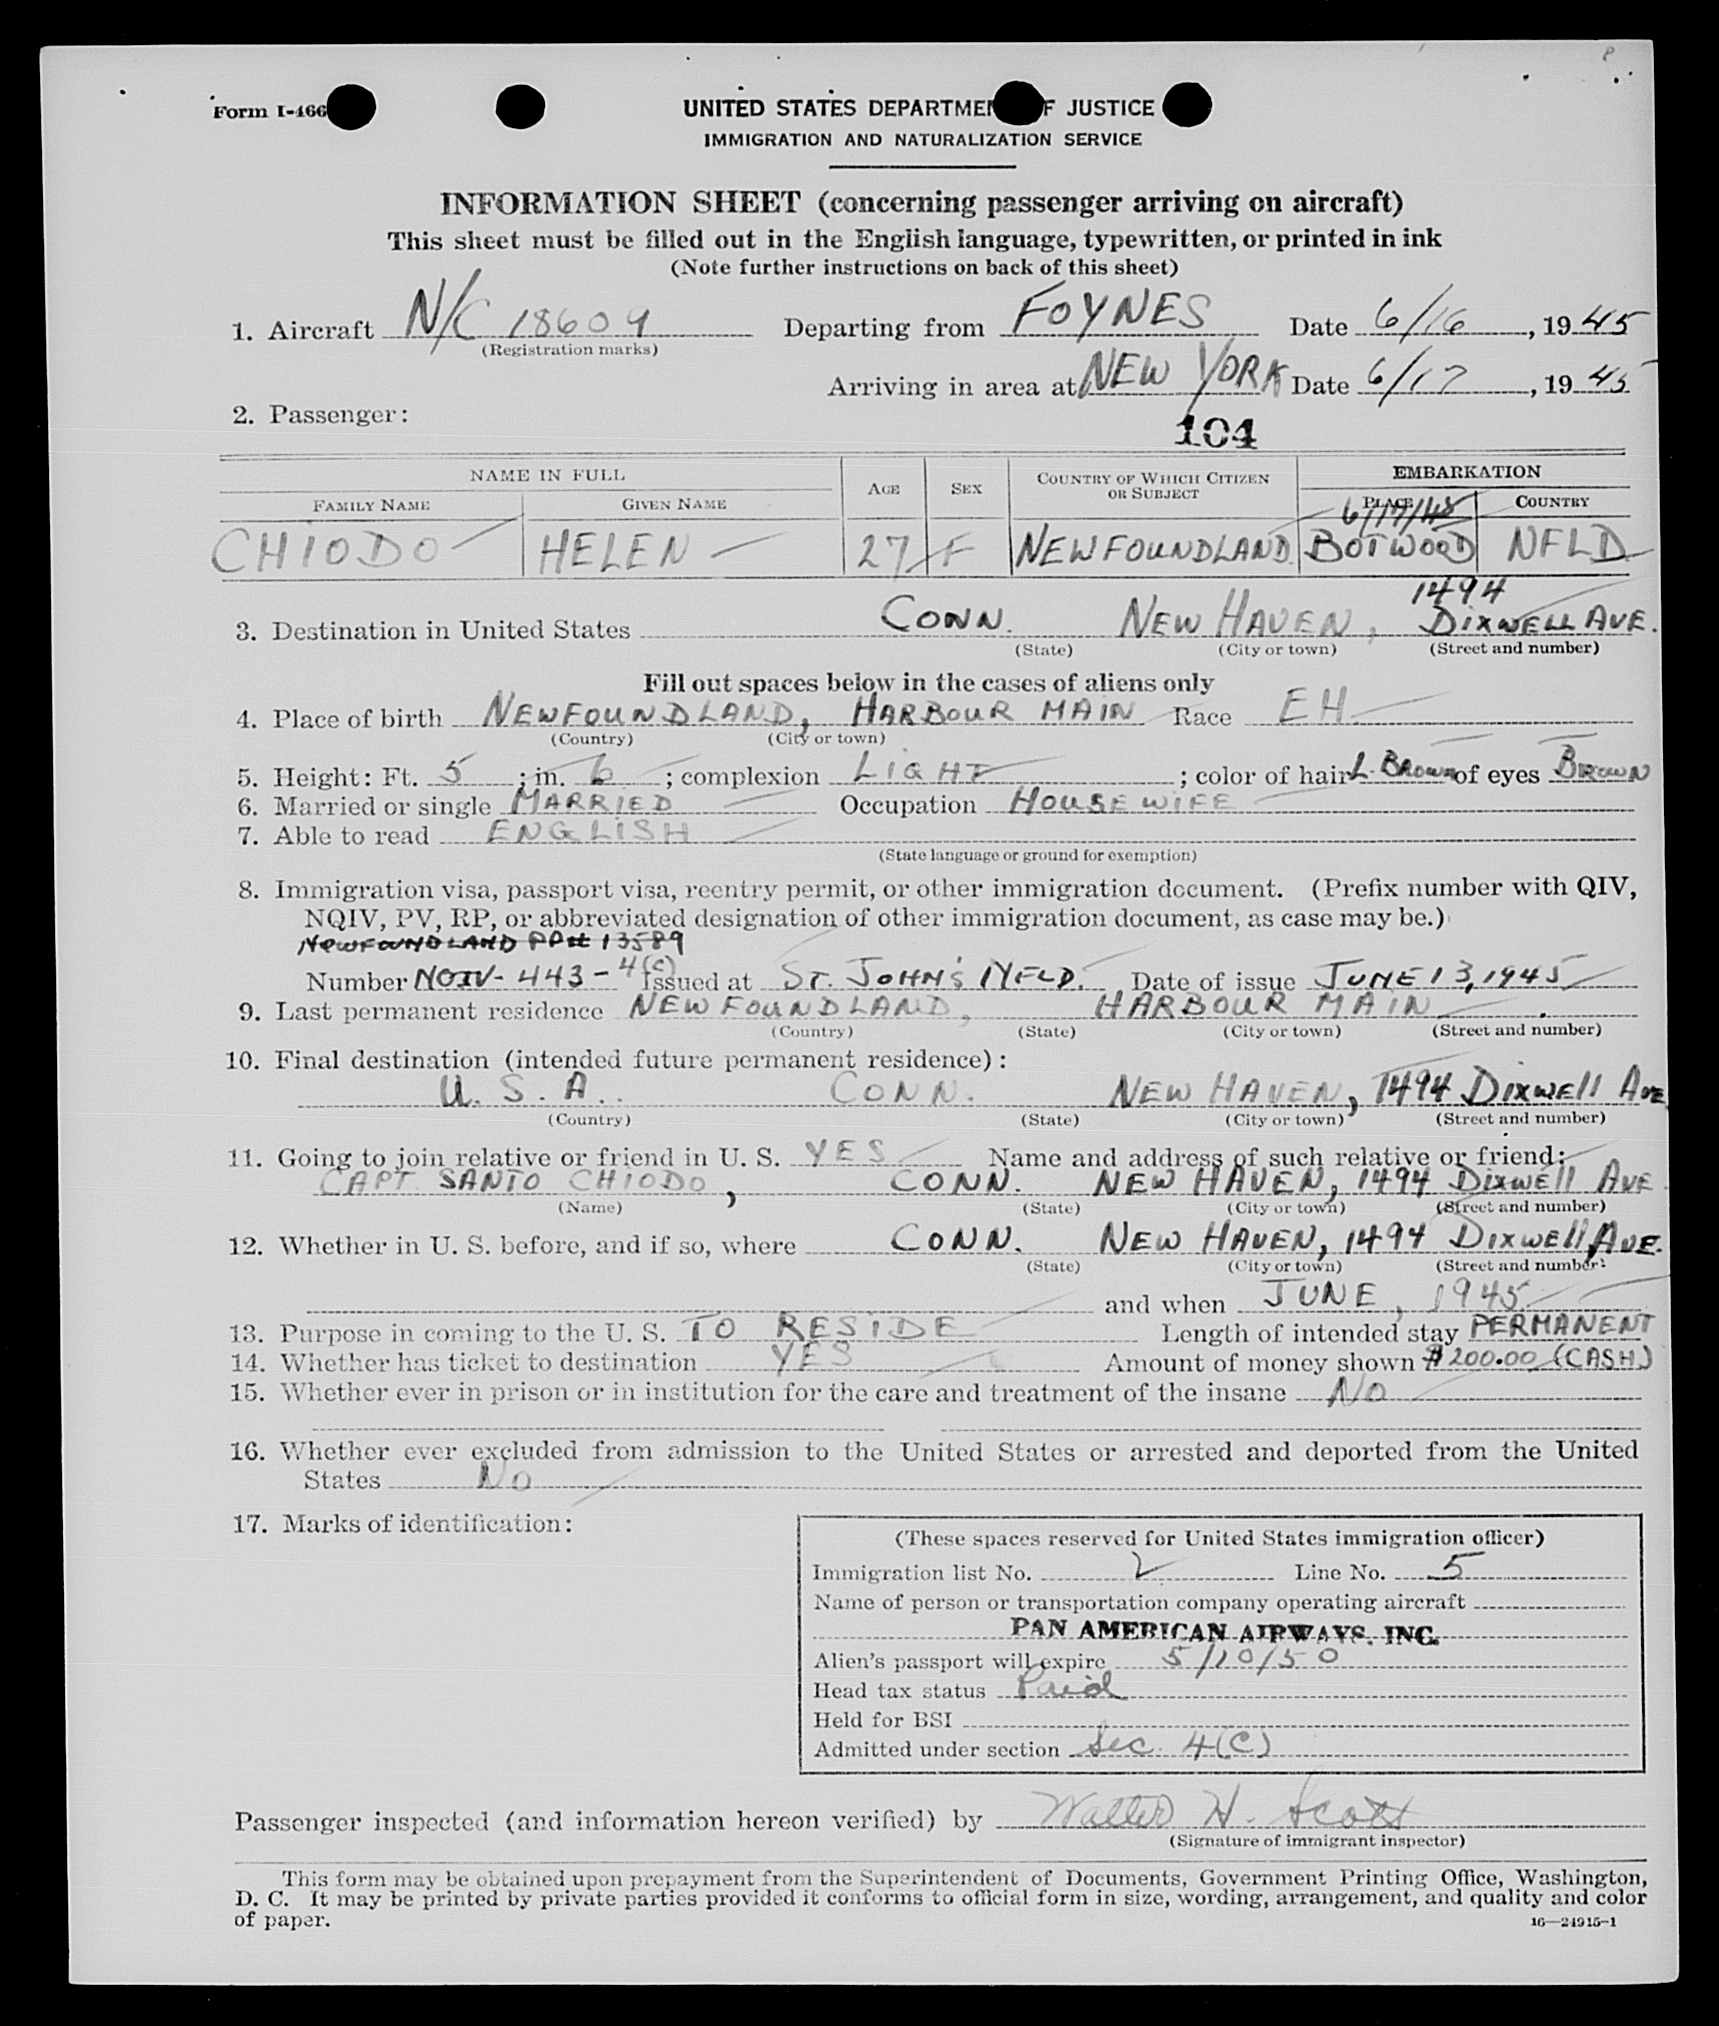 Form I-466
UNITED STATES DEPARTMENT OF JUSTICE
IMMIGRATION AND NATURALIZATION SERVICE
INFORMATION SHEET (concerning passenger arriving on aircraft)
This sheet must be filled out in the English language, typewritten, or printed in ink
(Note further instructions on back of this sheet)
1. Aircraft N/C 18609 Departing from FOYNES Date 6/16, 1945
(Registration marks)
Arriving in area at NEW YORK Date 6/17, 1945
2. Passenger:
104
NAME IN FULL AGE SEX COUNTRY OF WHICH CITIZEN OR SUBJECT EMBARKATION
FAMILY NAME GIVEN NAME PLACE COUNTRY
6/17/45
CHIODO HELEN 27 F NEWFOUNDLAND BOTWOOD NFLD
1494
3. Destination in United States CONN. NEW HAVEN, DIXWELL AVE.
(State) (City or town) (Street and number)
Fill out spaces below in the cases of aliens only
4. Place of birth NEWFOUNDLAND, HARBOUR MAIN Race EH
(Country) (City or town)
5. Height: Ft. 5; in. 6; complexion LIGHT; color of hair L. BROWN of eyes BROWN
6. Married or single MARRIED Occupation HOUSEWIFE
7. Able to read ENGLISH
(State language or ground for exemption)
8. Immigration visa, passport visa, reentry permit, or other immigration document. (Prefix number with QIV,
NQIV, PV, RP, or abbreviated designation of other immigration document, as case may be.)
NEWFOUNDLAND PP# 13589
Number NQIV-443-4(c) Issued at ST. JOHN'S NFLD. Date of issue JUNE 13, 1945
9. Last permanent residence NEWFOUNDLAND, HARBOUR MAIN
(Country) (State) (City or town) (Street and number)
10. Final destination (intended future permanent residence):
U. S. A. CONN. NEW HAVEN, 1494 DIXWELL AVE
(Country) (State) (City or town) (Street and number)
11. Going to join relative or friend in U. S. YES Name and address of such relative or friend:
CAPT. SANTO CHIODO, CONN. NEW HAVEN, 1494 DIXWELL AVE
(Name) (State) (City or town) (Street and number)
12. Whether in U. S. before, and if so, where CONN. NEW HAVEN, 1494 DIXWELL AVE.
(State) (City or town) (Street and number)
and when JUNE, 1945
13. Purpose in coming to the U. S. TO RESIDE Length of intended stay PERMANENT
14. Whether has ticket to destination YES Amount of money shown $200.00 (CASH)
15. Whether ever in prison or in institution for the care and treatment of the insane NO
16. Whether ever excluded from admission to the United States or arrested and deported from the United
States NO
17. Marks of identification:
(These spaces reserved for United States immigration officer)
Immigration list No. 2 Line No. 5
Name of person or transportation company operating aircraft
PAN AMERICAN AIRWAYS, INC.
Alien's passport will expire 5/10/50
Head tax status Paid
Held for BSI
Admitted under section Sec. 4(C)
Passenger inspected (and information hereon verified) by Walter H. Scott
(Signature of immigrant inspector)
This form may be obtained upon prepayment from the Superintendent of Documents, Government Printing Office, Washington,
D. C. It may be printed by private parties provided it conforms to official form in size, wording, arrangement, and quality and color
of paper.
16—24915-1